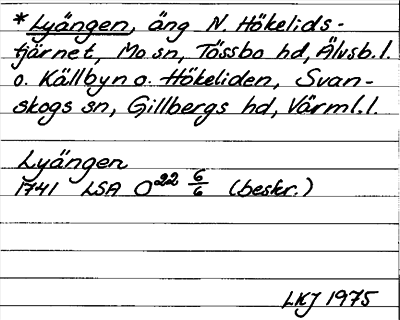 * Lyängen, äng N. Hökelids-
tjärnet, Mo sn, Tössbo hd, Älvsb.l.
o. Källbyn o. Hökeliden, Svan-
skogs sn, Gillbergs hd, Värml.l.
Lyängen
1741 LSA O²² 6/6 (beskr.)
LKJ 1975